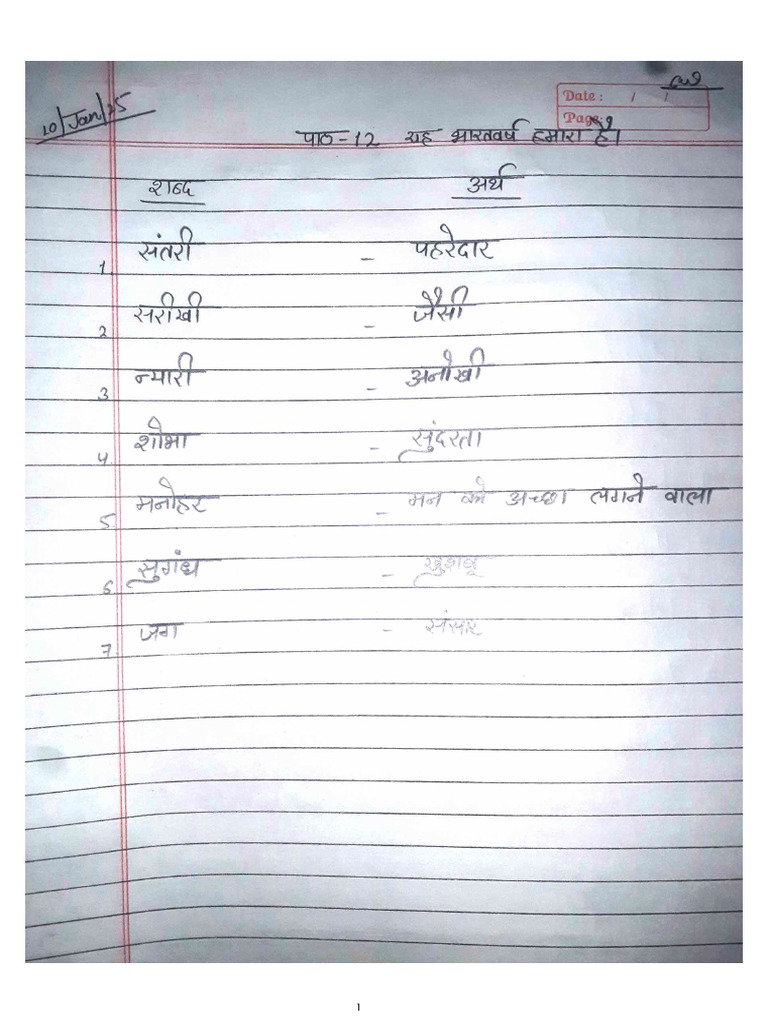 10/Jan/25
Date: / /
Page:
पाठ-12 यह भारतवर्ष हमारा है।
शब्द अर्थ
1. संतरी - पहरेदार
2. सरीखी - जैसी
3. न्यारी - अनोखी
4. शोभा - सुंदरता
5. मनोहर - मन को अच्छा लगने वाला
6. सुगंध - खुशबू
7. जग - संसार
1